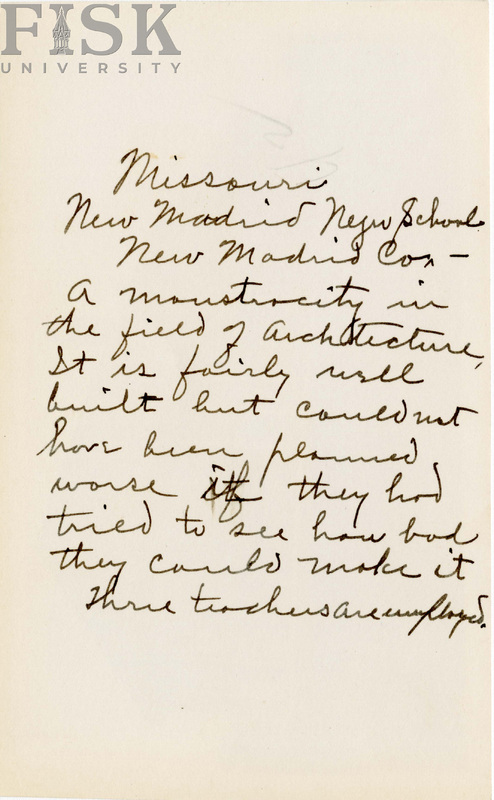 FISK
UNIVERSITY
Missouri
New Madrid Negro School
New Madrid Co. —
A monstrocity in
the field of Architecture,
It is fairly well
built but could not
have been planned
worse if they had
tried to see how bad
they could make it
Three teachers are employed.